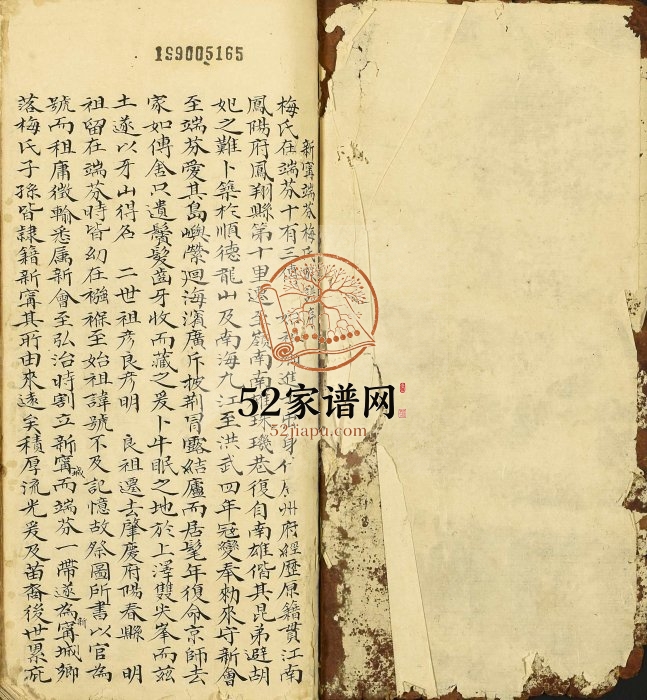 199005165
新寧端芬梅氏
梅氏在端芬十有三
始祖
進
中
身
州府經歷原籍貫江南
鳳陽府鳳翔縣第十里遷至嶺南南雄珠璣巷復自南雄偕其昆弟避胡
妃之難卜築於順德龍山及南海九江至洪武四年冦變奉勅來守新會
至端芬愛其島嶼縈迴海濱廣斥披荆冒露結廬而居髦年復命京師去
家如傳舍只遺鬢髮齒牙收而藏之爰卜牛眠之地於上澤雙尖峯而茲
土遂以牙山得名 二世祖彥良彥明 良祖遷去肇慶府陽春縣 明
祖留在端芬時皆幼在襁褓至始祖諱號不及記憶故祭圖所書以官為
號而祖庸徵輸悉属新會至弘治時割立新寧城而端芬一帶遂為新寧城鄉
落梅氏子孫皆隷籍新寧其所由來遠矣積厚流光爰及苗裔後世累
52家谱网
52jiapu.com